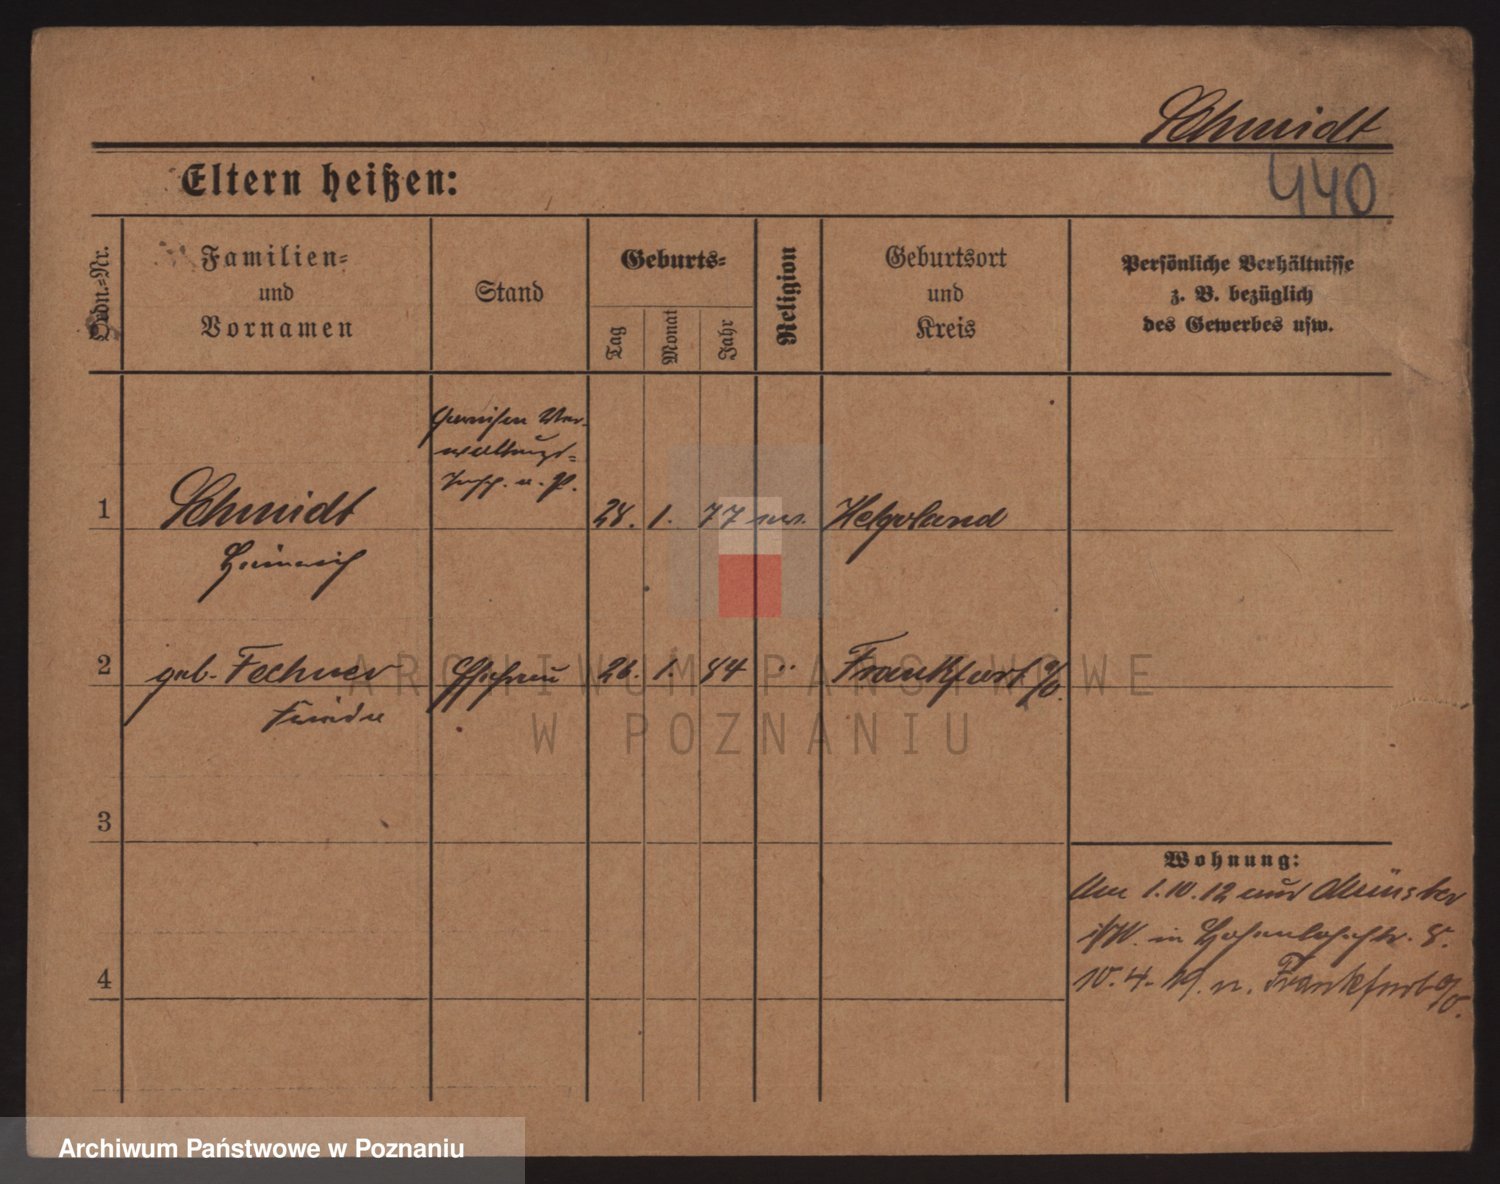 Schmidt
440
Eltern heißen:
Ordn.-Nr.
Familien-
und
Vornamen
Stand
Geburts-
Tag
Monat
Jahr
Religion
Geburtsort
und
Kreis
Persönliche Verhältnisse
z. B. bezüglich
des Gewerbes usw.
Garnison Ver-
waltungs-
Insp. a. P.
1 Schmidt 28. 1. 77 ev. Helgoland
Heinrich
2 geb. Fechner Ehefrau 26. 1. 84 " Frankfurt a/O.
3
Wohnung:
Am 1.10.12 aus Münster
i/W. in Hohenlohestr. 8.
4
10.4.19. n. Frankfurt a/O.
ARCHIWUM PAŃSTWOWE
W POZNANIU
Archiwum Państwowe w Poznaniu